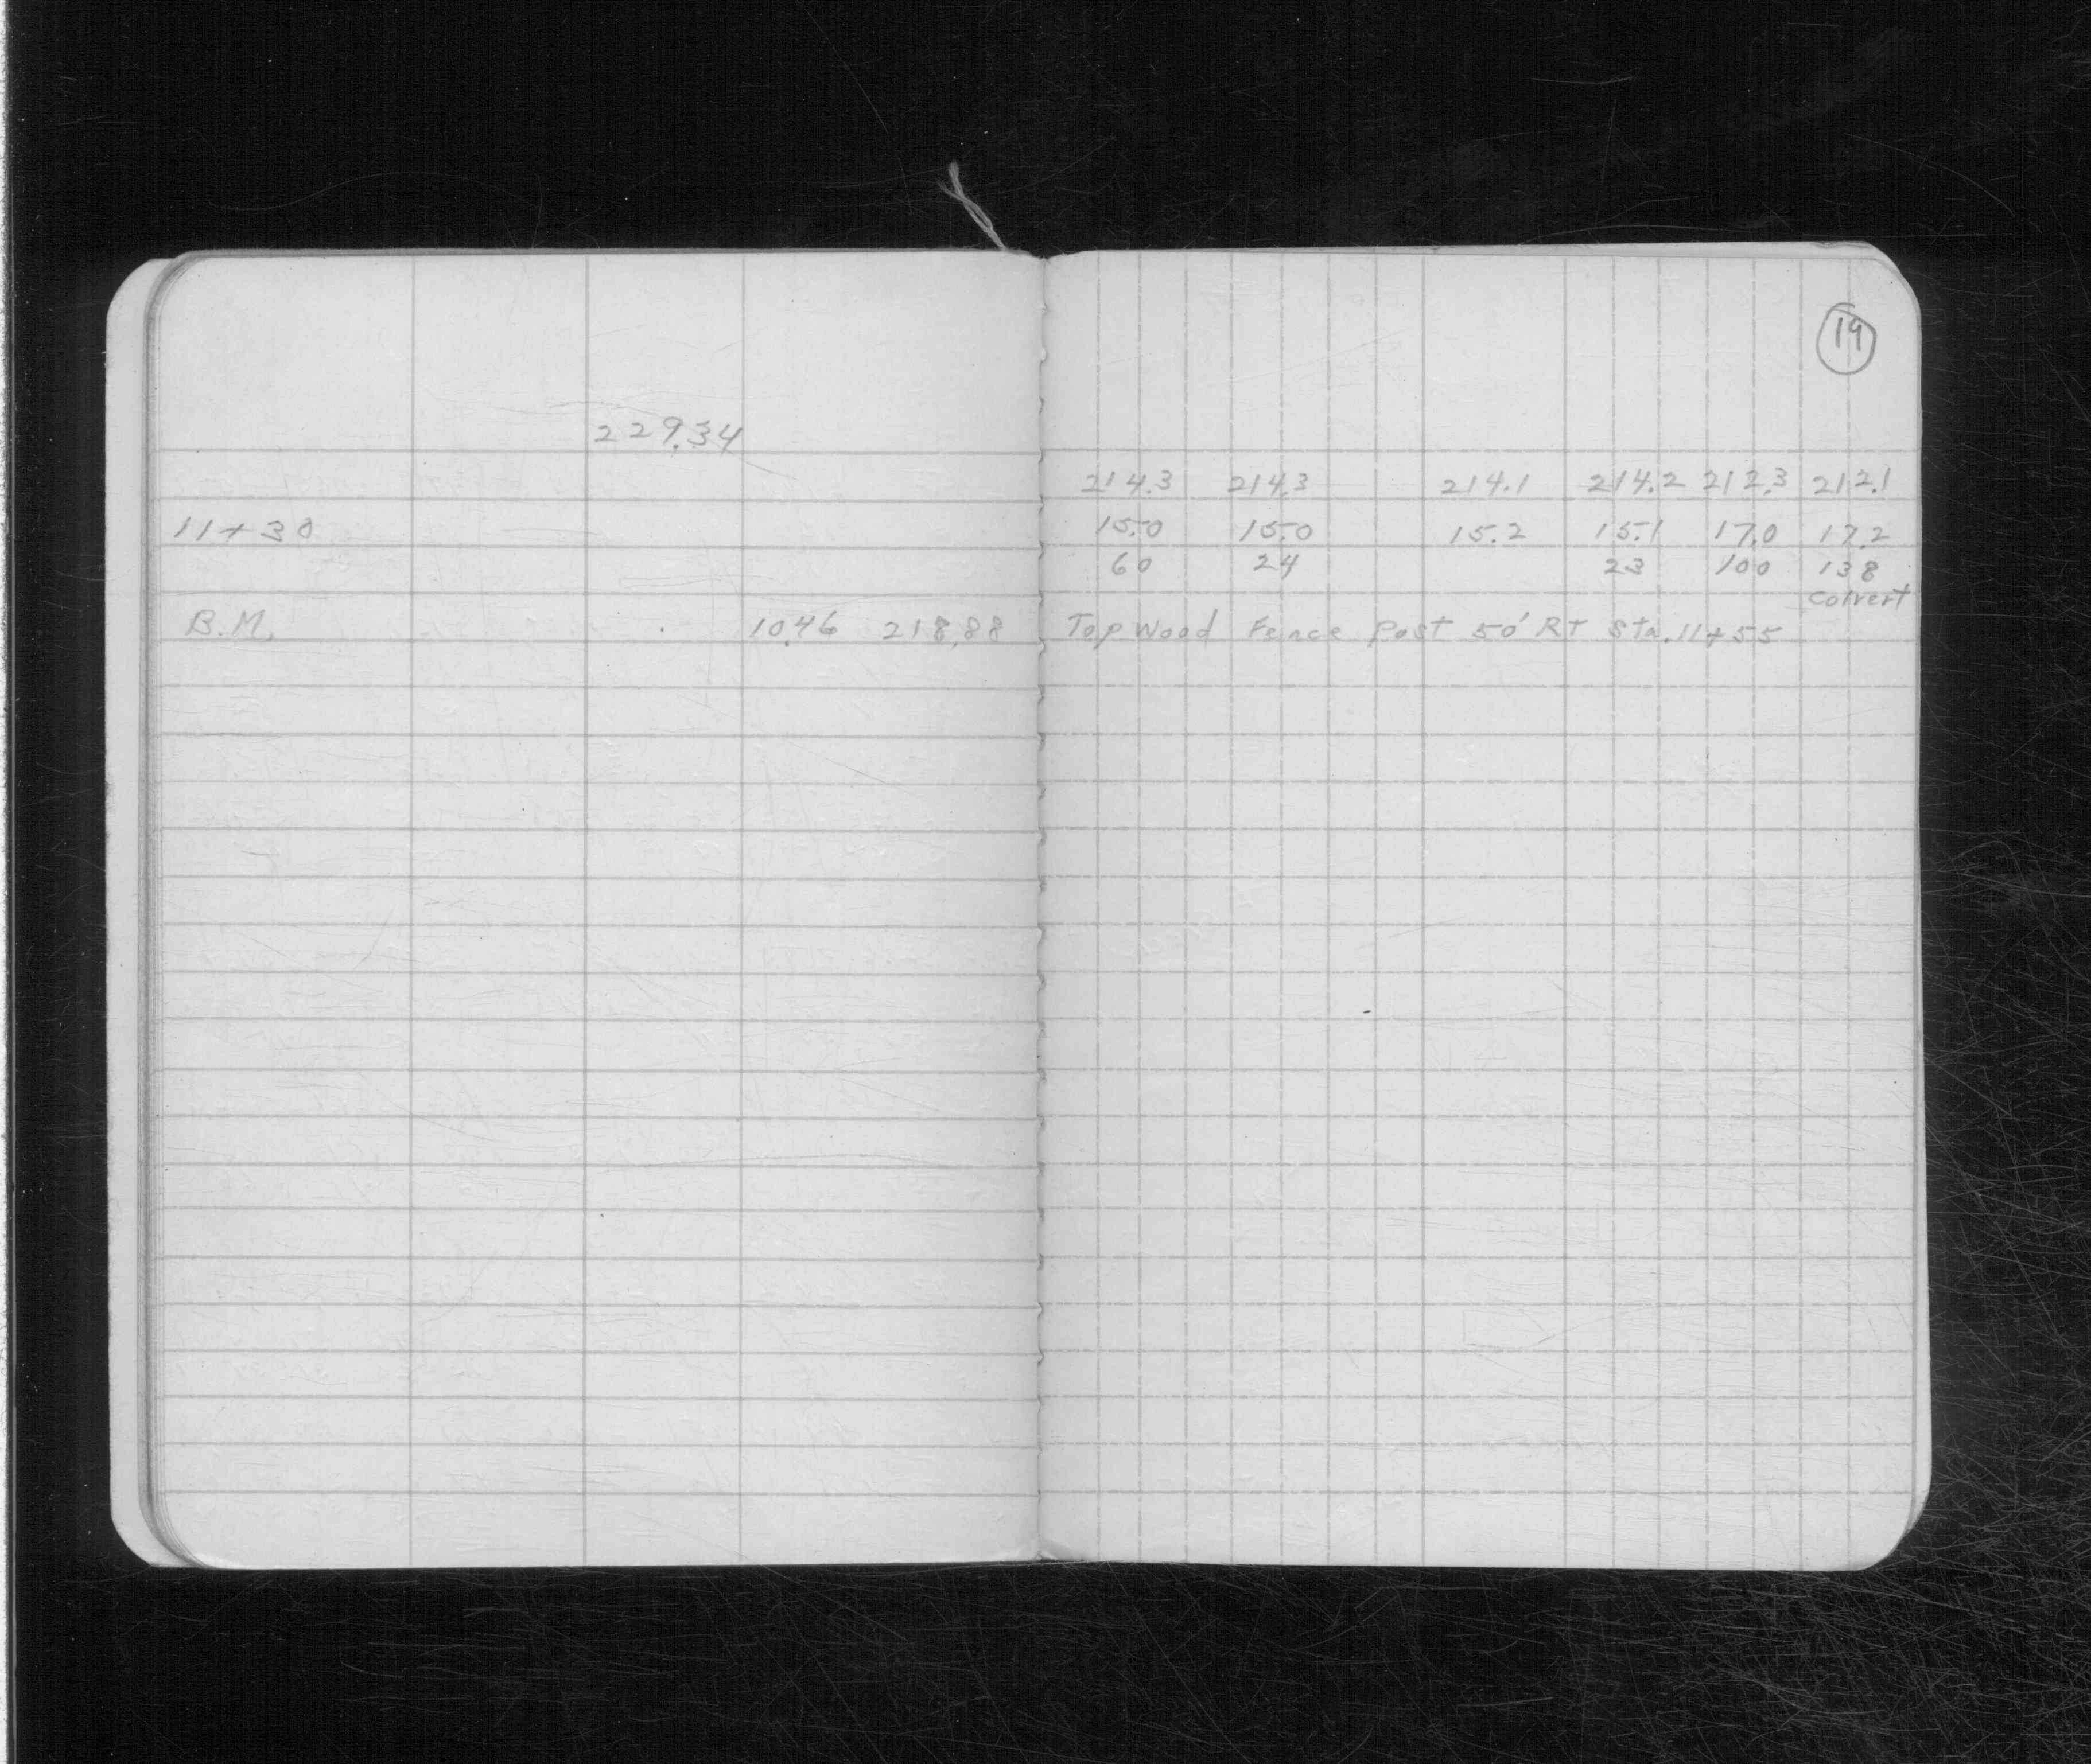 19
229.34
214.3 214.3 214.1 214.2 212.3 212.1
11+30 15.0 15.0 15.2 15.1 17.0 17.2
60 24 23 100 138
Colvert
B.M. 10.46 218.88 Top Wood Fence Post 50' RT Sta. 11+55